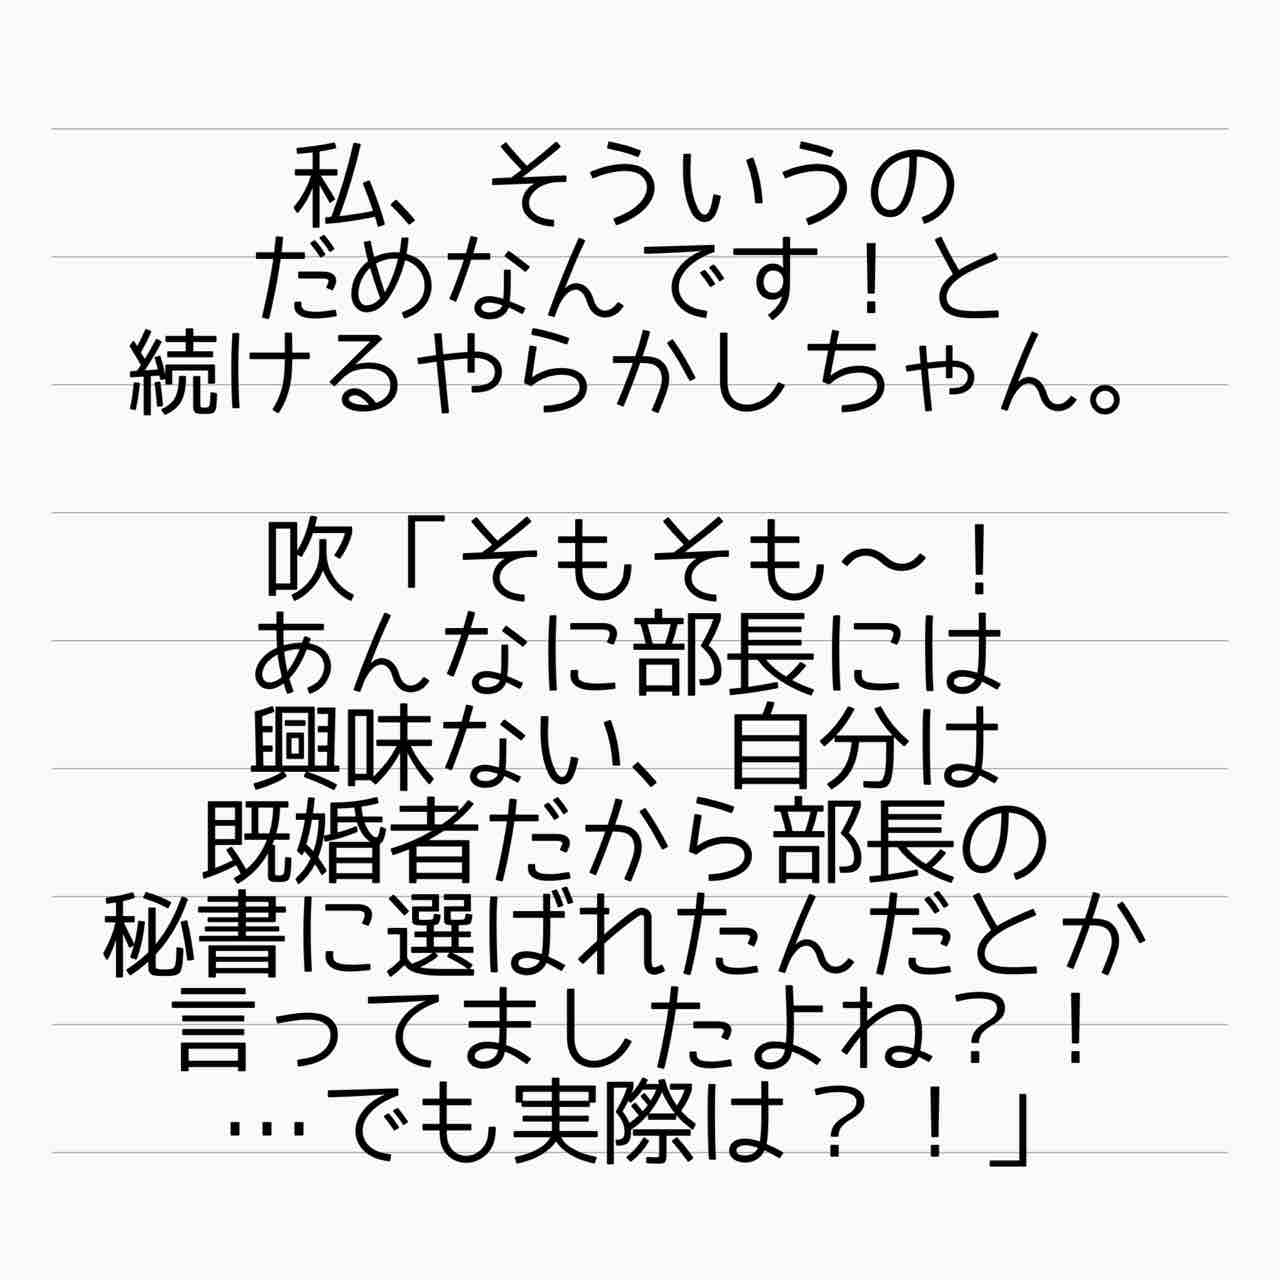 私、そういうの
だめなんです！と
続けるやらかしちゃん。
吹「そもそも〜！
あんなに部長には
興味ない、自分は
既婚者だから部長の
秘書に選ばれたんだとか
言ってましたよね？！
…でも実際は？！」